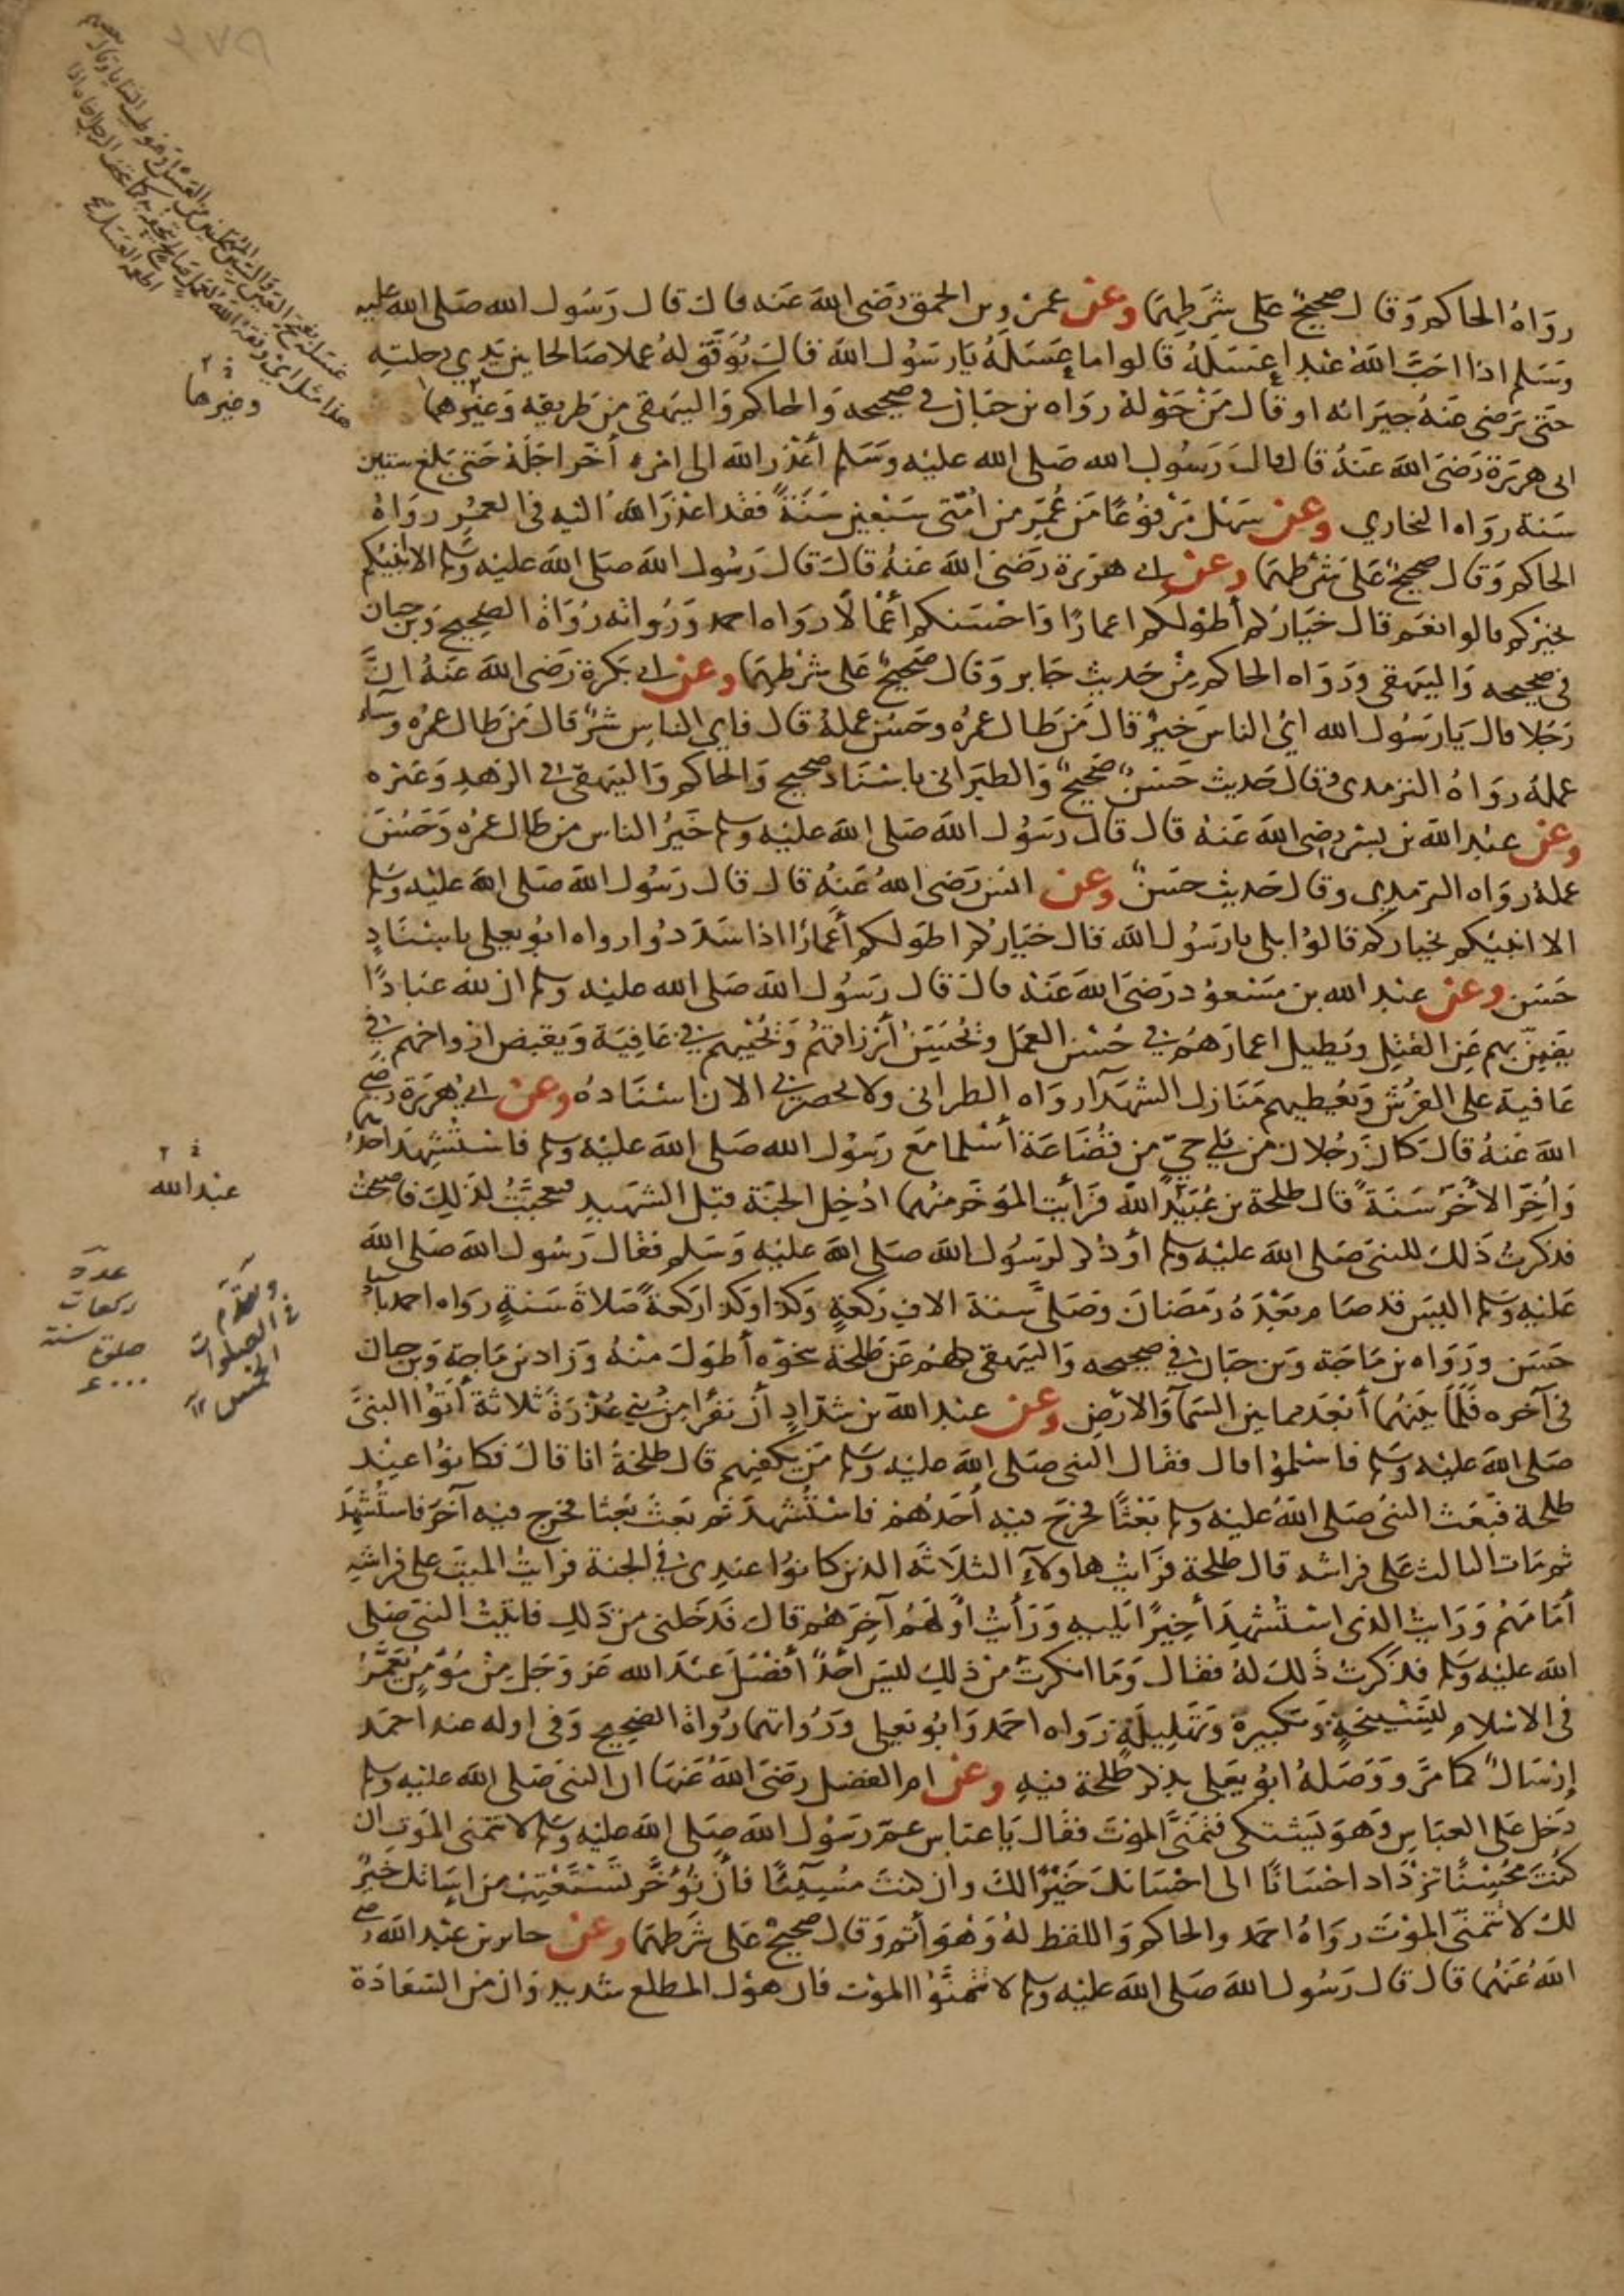 رواه الحاكم وقال صحيح على شرطهما وعن عمرو بن الحمق رضي الله عنه قال قال رسول الله صلى الله عليه
وسلم اذا احب الله عبدا عسله قالوا ما عسله يا رسول الله قال يوفق له عملا صالحا بين يدي رحلته
حتى يرضى عنه جيرانه او قال من حوله رواه بن حبان في صحيحه والحاكم والبيهقي من طريقه وغيرهما
ابى هريرة رضي الله عنه قال قال رسول الله صلى الله عليه وسلم أعذر الله الى امرء أخر اجله حتى بلغ ستين
سنة رواه البخاري وعن سهل مرفوعا من عمر من امتي سبعين سنة فقد اعذر الله اليه في العمر رواه
الحاكم وقال صحيح على شرطهما وعن ابي هريرة رضي الله عنه قال قال رسول الله صلى الله عليه وسلم الا انبئكم
بخيركم قالوا نعم قال خياركم أطولكم اعمارا واحسنكم أعمالا رواه احمد ورواته رواة الصحيح وبن حبان
في صحيحه والبيهقي ورواه الحاكم من حديث جابر وقال صحيح على شرطهما وعن ابي بكرة رضي الله عنه ان
رجلا قال يا رسول الله اي الناس خير قال من طال عمره وحسن عمله قال فاي الناس شر قال من طال عمره وساء
عمله رواه الترمذي وقال حديث حسن صحيح والطبراني باسناد صحيح والحاكم والبيهقي في الزهد وغيره
وعن عبد الله بن بسر رضي الله عنه قال قال رسول الله صلى الله عليه وسلم خير الناس من طال عمره وحسن
عمله رواه الترمذي وقال حديث حسن وعن انس رضي الله عنه قال قال رسول الله صلى الله عليه وسلم
الا انبئكم بخياركم قالوا بلى يا رسول الله قال خياركم اطولكم أعمارا اذا سددوا رواه ابو يعلى باسناد
حسن وعن عبد الله بن مسعود رضي الله عنه قال قال رسول الله صلى الله عليه وسلم ان لله عبادا
يضن بهم عن القتل ويطيل اعمارهم في حسن العمل ويحسن أرزاقهم ويحييهم في عافية ويقبض ارواحهم في
عافية على الفرش ويعطيهم منازل الشهدآ رواه الطبراني ولا يحضرني الان اسناده وعن ابي هريرة رضي
الله عنه قال كان رجلان من بلي حي من قضاعة أسلما مع رسول الله صلى الله عليه وسلم فاستشهد احدهما
وأخر الأخر سنة قال طلحة بن عبيد الله فرأيت المؤخر منهما ادخل الجنة قبل الشهيد فعجبت لذلك فاصبحت
فذكرت ذلك للنبي صلى الله عليه وسلم أو ذكر لرسول الله صلى الله عليه وسلم فقال رسول الله صلى الله
عليه وسلم اليس قد صام بعده رمضان وصلى ستة الاف ركعة وكذا وكذا ركعة صلاة سنة رواه احمد باسناد
حسن ورواه بن ماجة وبن حبان في صحيحه والبيهقي كلهم عن طلحة بنحوه أطول منه وزاد بن ماجة وبن حبان
في آخره فلما بينهما أبعد مما بين السمآ والارض وعن عبد الله بن شداد أن نفرا من بني عذرة ثلاثة أتوا النبي
صلى الله عليه وسلم فاسلموا قال فقال النبي صلى الله عليه وسلم من يكفيهم قال طلحة انا قال فكانوا عند
طلحة فبعث النبي صلى الله عليه وسلم بعثا فخرج فيه أحدهم فاستشهد ثم بعث بعثا فخرج فيه آخر فاستشهد
ثم مات الثالث على فراشه قال طلحة فرايت هاولآء الثلاثة الذين كانوا عندي في الجنة فرايت الميت على فراشه
أمامهم ورايت الذي استشهد أخيرا يليه ورأيت اولهم آخرهم قال فدخلني من ذلك فاتيت النبي صلى
الله عليه وسلم فذكرت ذلك له فقال وما انكرت من ذلك ليس أحد أفضل عند الله عز وجل من مؤمن يعمر
في الاسلام لتسبيحة وتكبيرة وتهليلة رواه احمد وابو يعلى ورواتهما رواة الصحيح وفي اوله عند احمد
إرسال كما مر ووصله ابو يعلى بذكر طلحة فيه وعن ام الفضل رضي الله عنها ان النبي صلى الله عليه وسلم
دخل على العباس وهو يشتكي فتمنى الموت فقال يا عباس عم رسول الله صلى الله عليه وسلم لا تتمنى الموت ان
كنت محسنا تزداد احسانا الى احسانك خيرا لك وان كنت مسيئا فأن تؤخر تستعتب من اسائتك خير
لك لا تتمنى الموت رواه احمد والحاكم واللفظ له وهو أتم وقال صحيح على شرطهما وعن جابر بن عبد الله رضي
الله عنهما قال قال رسول الله صلى الله عليه وسلم لا تتمنوا الموت فان هول المطلع شديد وان من السعادة
وغيرها
عبد الله
وتقدم
في الصلوات
الخمس
عدة
ركعات
صلوة سنة